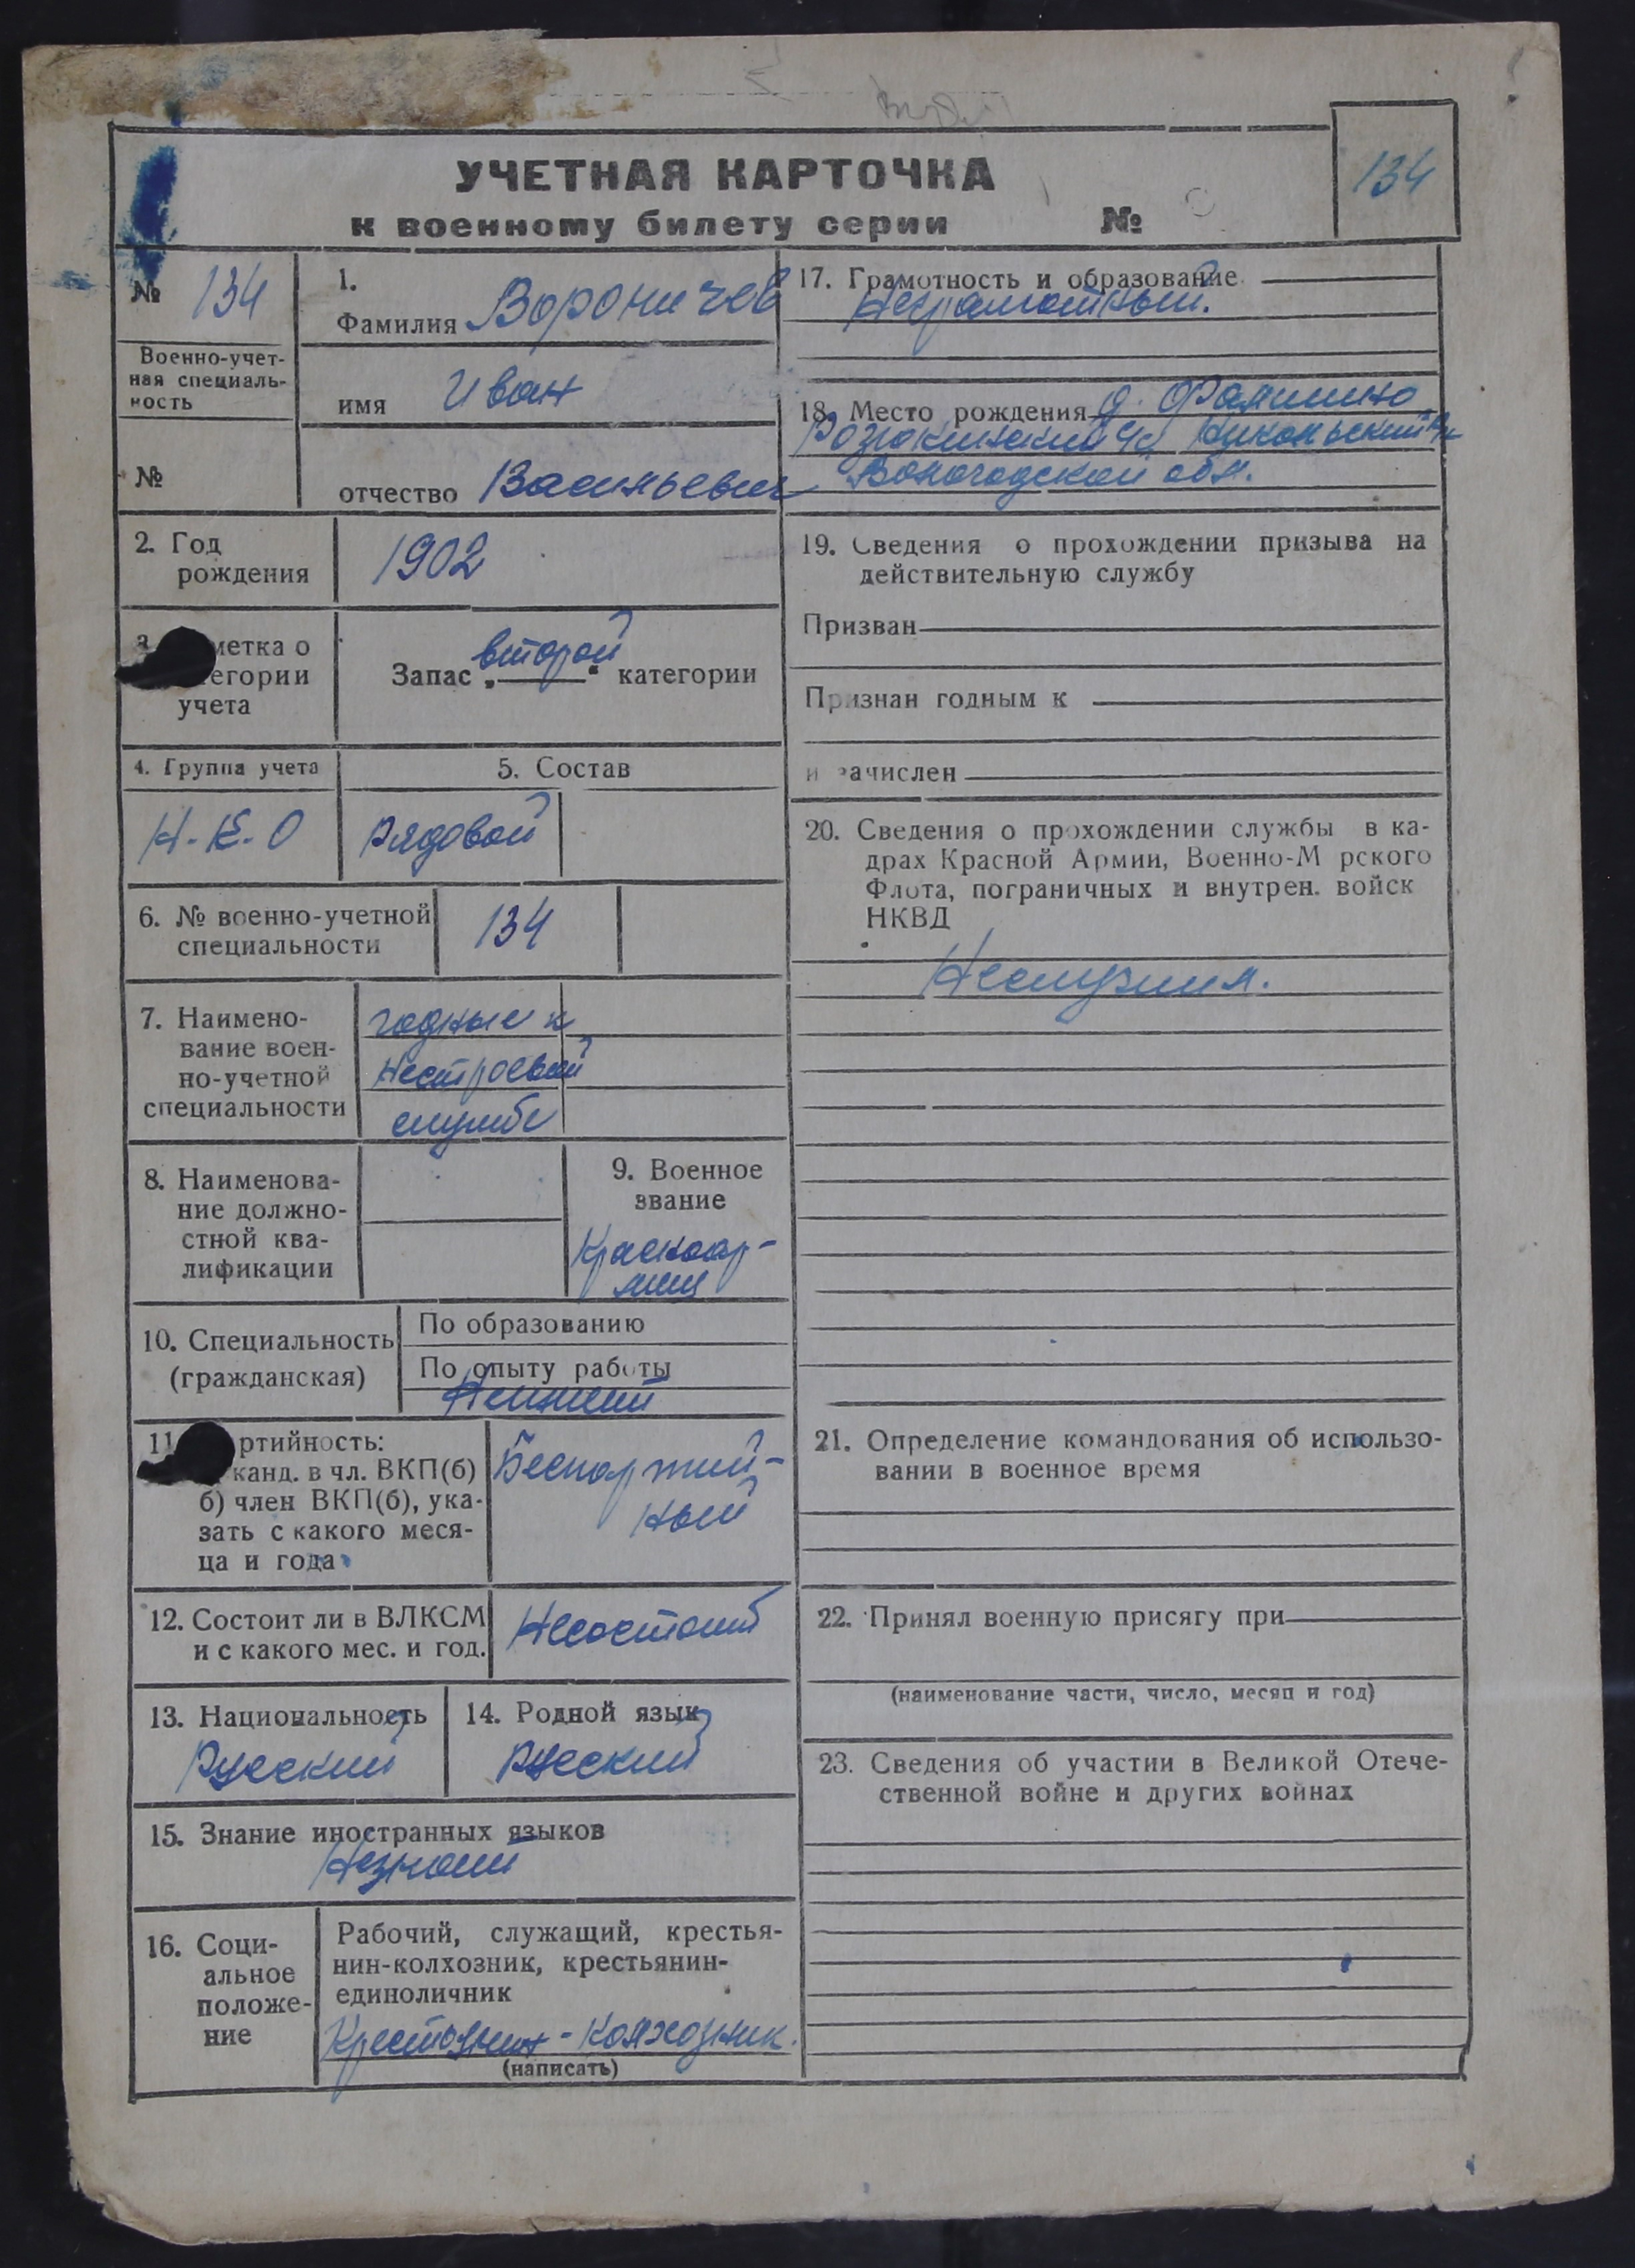 УЧЕТНАЯ КАРТОЧКА
к военному билету серии №
134
№ 134
Военно-учет-
ная специаль-
ность
№
1.
Фамилия Вороничев
имя Иван
отчество Васильевич
2. Год
рождения
1902
3. метка о
егории
учета
Запас „второй“ категории
4. Группа учета
Н-К-О
5. Состав
рядовой
6. № военно-учетной
специальности
134
7. Наимено-
вание воен-
но-учетной
специальности
годные к
нестроевой
службе
8. Наименова-
ние должно-
стной ква-
лификации
9. Военное
звание
Красноар-
меец
10. Специальность
(гражданская)
По образованию
По опыту работы
11 ртийность:
канд. в чл. ВКП(б)
б) член ВКП(б), ука-
зать с какого меся-
ца и года
Беспартий-
ный
12. Состоит ли в ВЛКСМ
и с какого мес. и год.
Несостоит
13. Национальность
Русский
14. Родной язык
русский
15. Знание иностранных языков
16. Соци-
альное
положе-
ние
Рабочий, служащий, крестья-
нин-колхозник, крестьянин-
единоличник
Крестьянин-колхозник.
(написать)
17. Грамотность и образование
Неграмотный.
18. Место рождения д.
Никольский
Вологодской обл.
19. Сведения о прохождении призыва на
действительную службу
Призван
Признан годным к
и зачислен
20. Сведения о прохождении службы в ка-
драх Красной Армии, Военно-М рского
Флота, пограничных и внутрен. войск
НКВД
Неслужил.
21. Определение командования об использо-
вании в военное время
22. Принял военную присягу при
(наименование части, число, месяц и год)
23. Сведения об участии в Великой Отече-
ственной войне и других войнах